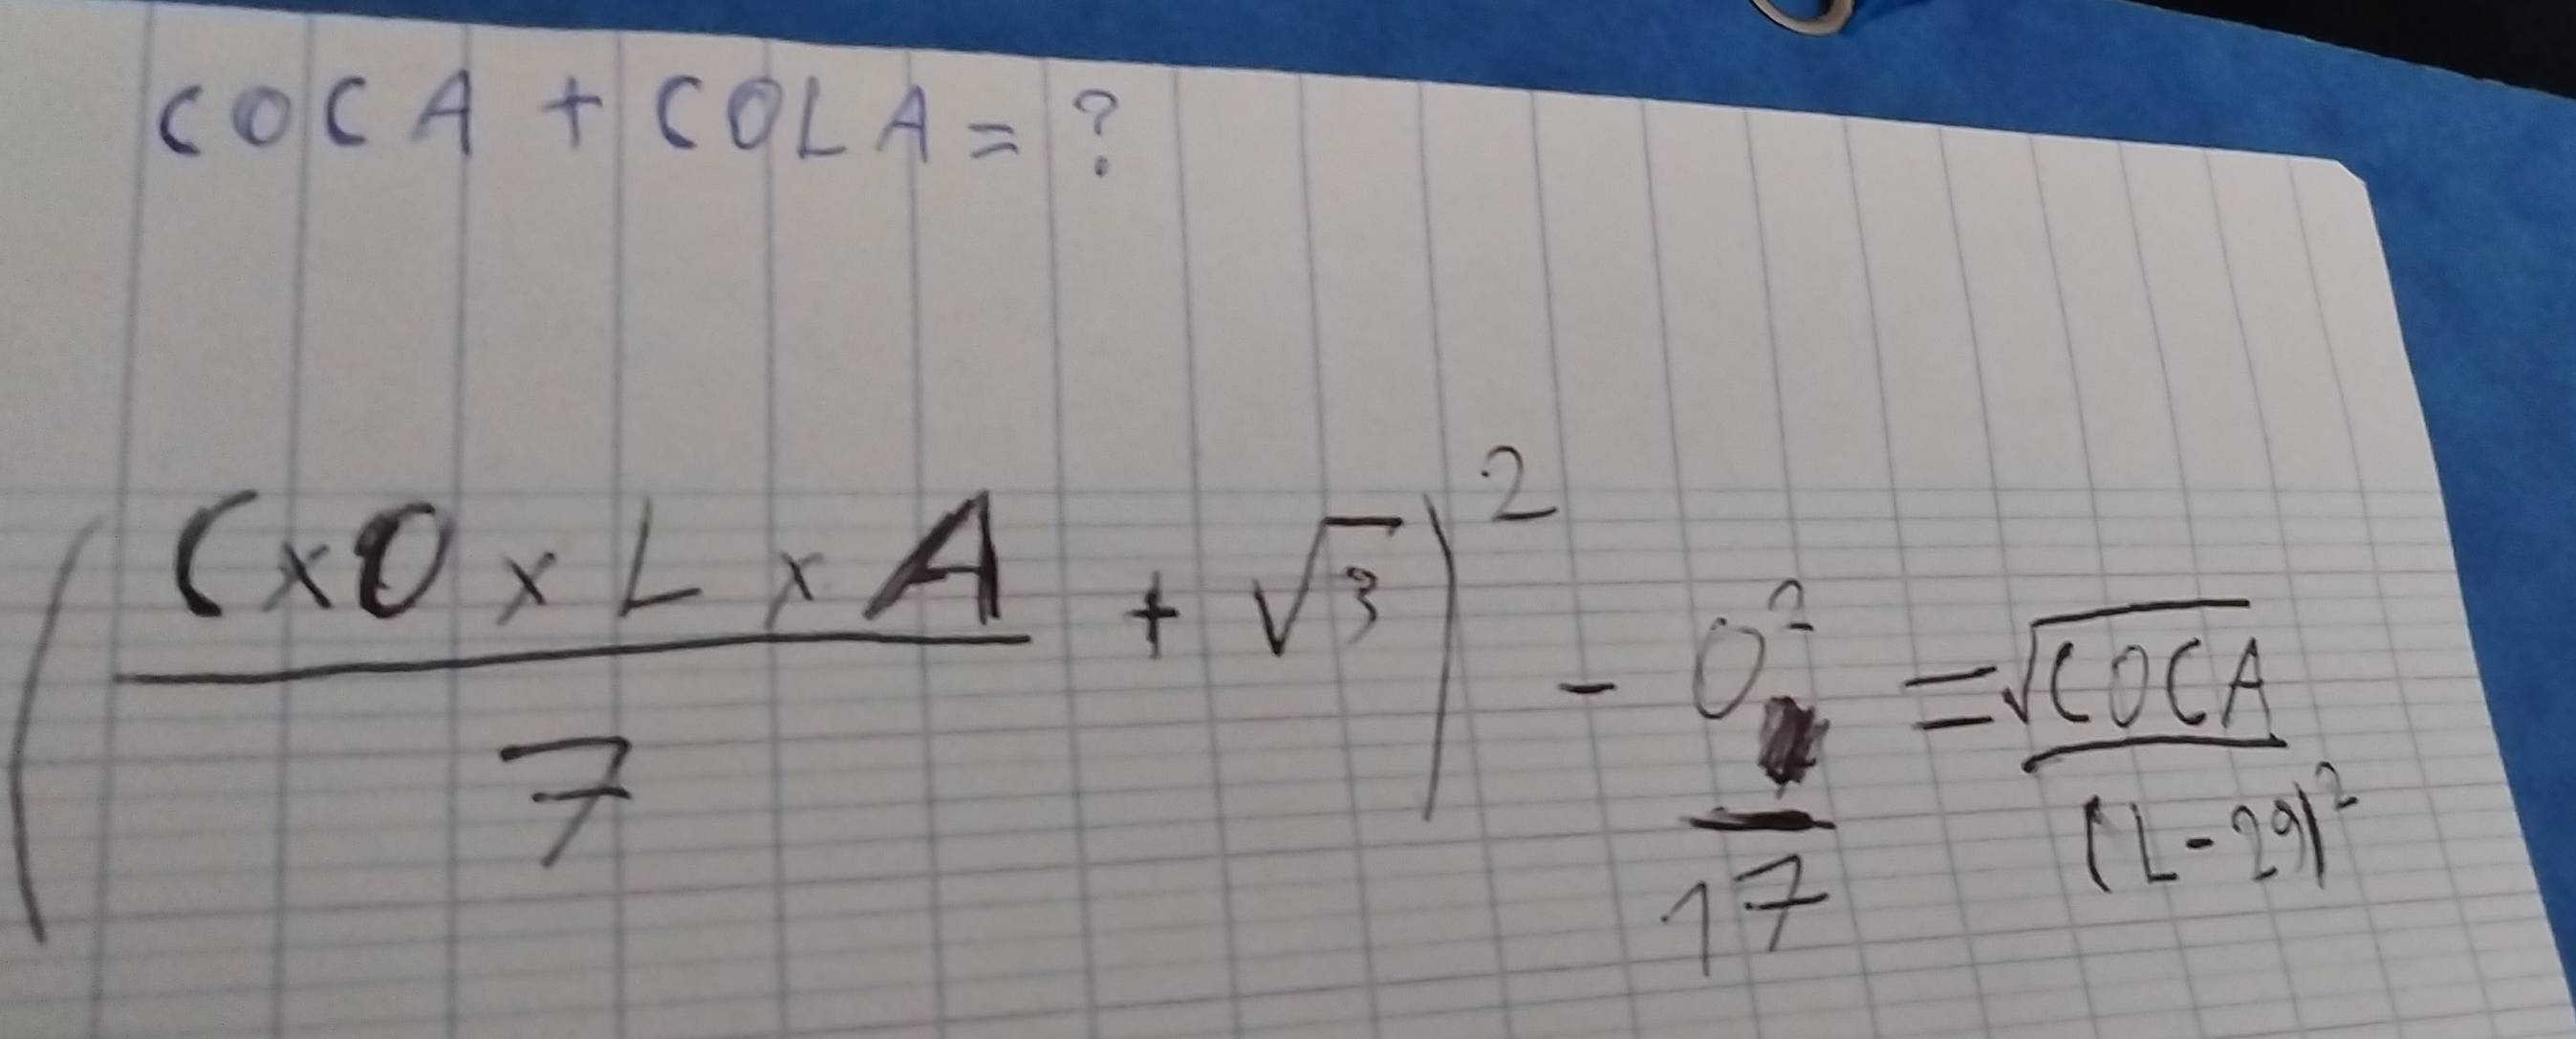 COCA + COLA = ?
(C×O×L×A / 7 + √3)² - O² / 17 = √COCA / (L-29)²